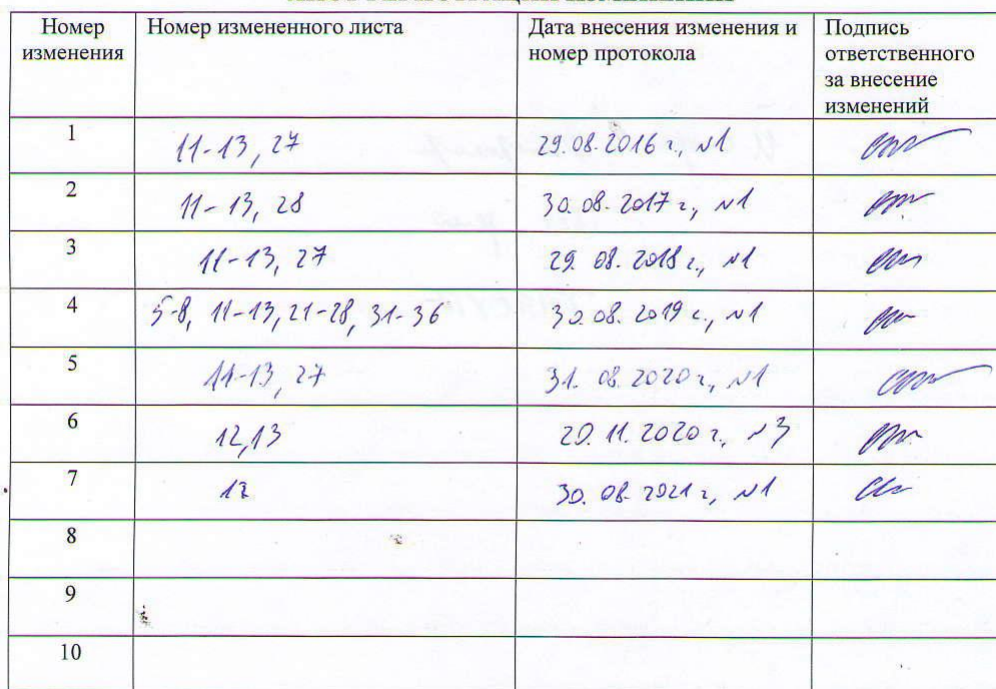 Номер изменения | Номер измененного листа | Дата внесения изменения и номер протокола | Подпись ответственного за внесение изменений
1 | 11-13, 27 | 29.08.2016 г., №1
2 | 11-13, 28 | 30.08.2017 г., №1
3 | 11-13, 27 | 29.08.2018 г., №1
4 | 5-8, 11-13, 21-28, 31-36 | 30.08.2019 г., №1
5 | 11-13, 27 | 31.08.2020 г., №1
6 | 12,13 | 20.11.2020 г., №3
7 | 12 | 30.08.2021 г., №1
8
9
10